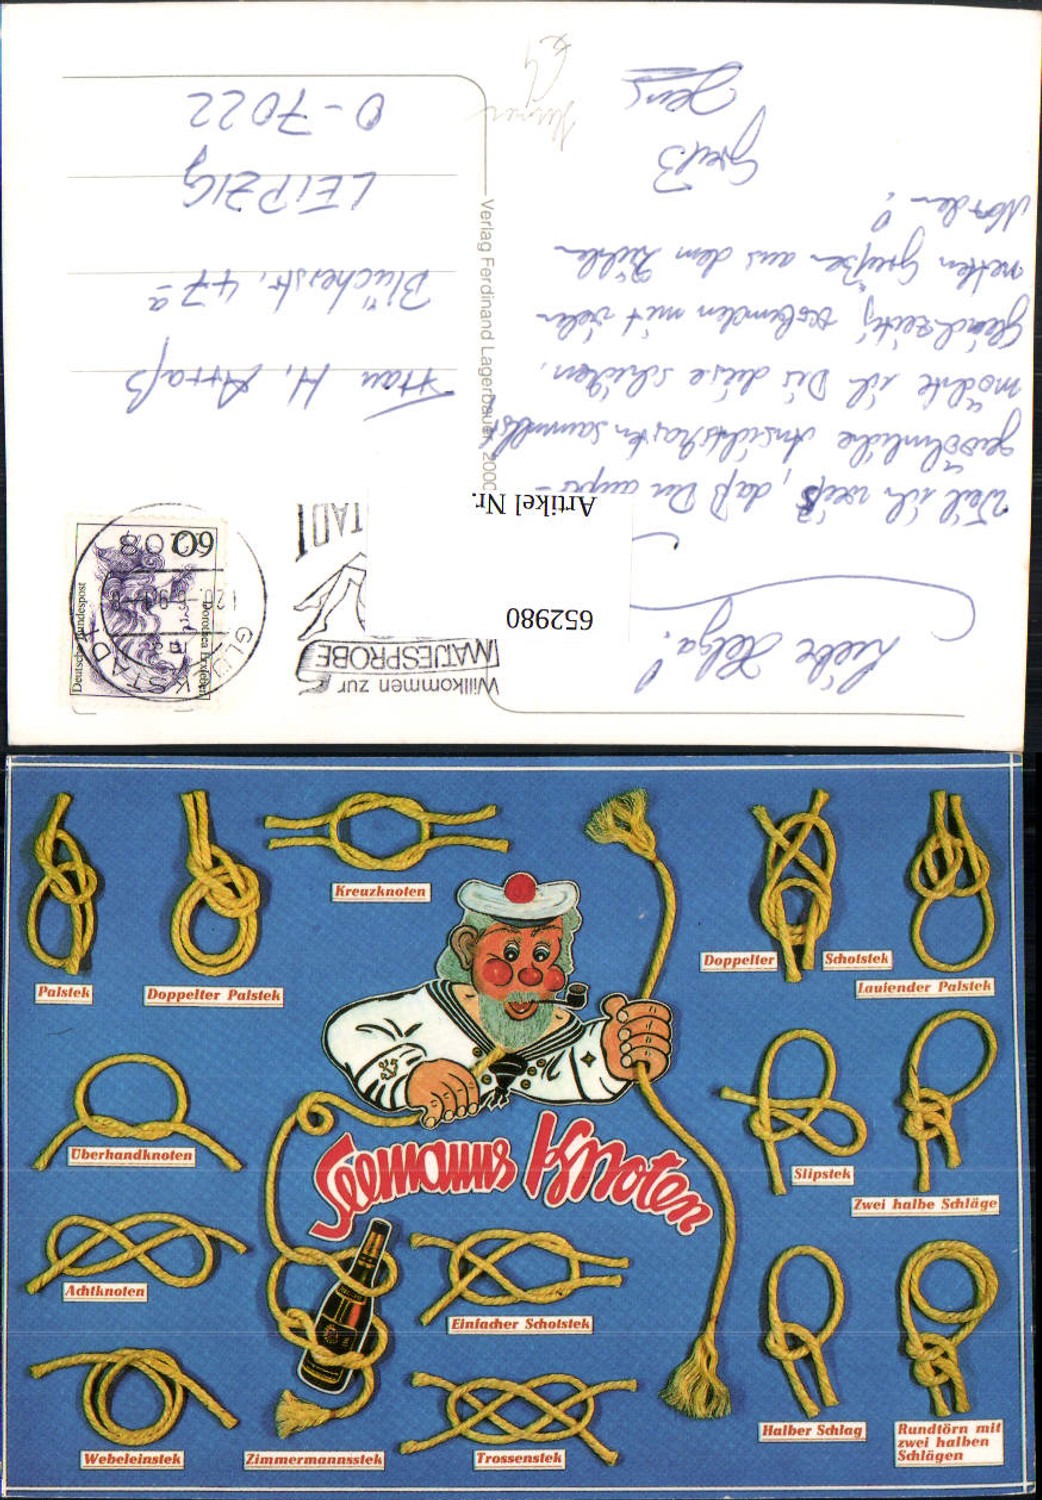 Liebe Helga!
Weil ich weiß, daß Du auger-
gewöhnliche Ansichtskarten sammelst
möchte ich Dir diese schicken,
gleichzeitig verbunden mit vielen
netten Grüßen aus dem
Norden!
Gruß
Jens
Willkommen zur
MATJESPROBE
STADT
GLÜCKSTADT
Deutsche Bundespost
Dorothea Erxleben
60
Frau H. Arraß
Blücherstr. 47a
LEIPZIG
O-7022
Verlag Ferdinand Lagerbauer, 2000
652980
Artikel Nr.
Kreuzknoten
Palstek
Doppelter Palstek
Doppelter Schotstek
Laufender Palstek
Überhandknoten
Slipstek
Zwei halbe Schläge
Seemanns Knoten
Achtknoten
Einfacher Schotstek
Webeleinstek
Zimmermannsstek
Trossenstek
Halber Schlag
Rundtörn mit
zwei halben
Schlägen